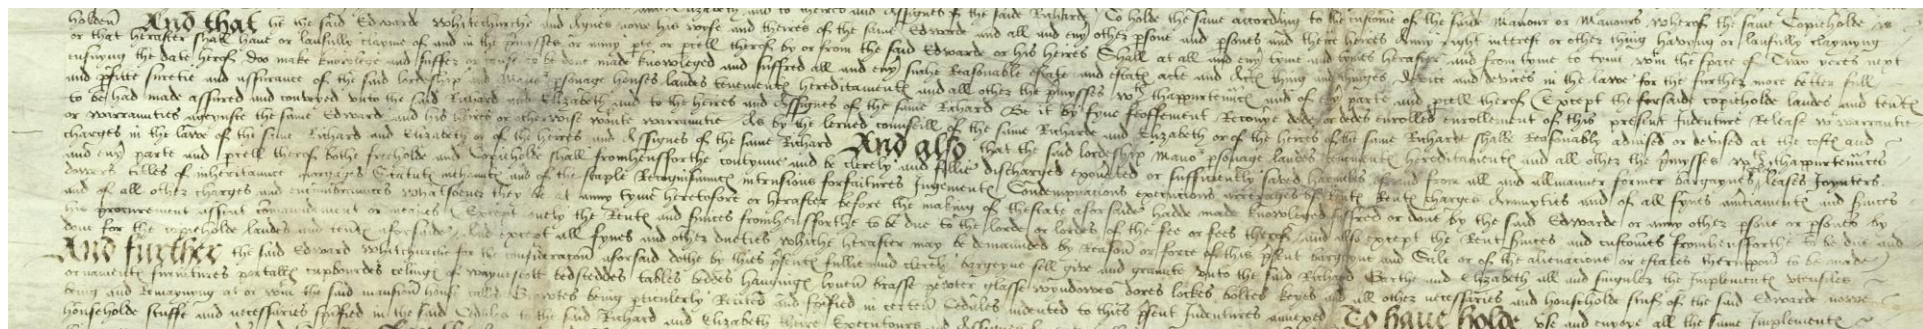 Elizabeth and to theires and Assignes of the saide Richarde To holde the same according to the custome of the saide Manour or Manours wherof the same Copieholde is
holden And that he the said Edwarde Whitchurche and Agnes nowe his wife and theires of the same Edwarde and all and eny other psone and psones and their heires
or that heraftur shall haue or laufully clayme of and in the pmysses or anny pte or pcell therof by or from the said Edwarde or his heires Anny right interest or other thing having or laufully clayming
ensuyng the date herof doo make knowlege and suffer or cause to be done made knowleged and suffred all and eny suche Reasonable estate and estates acte and actes thing and thinges devise and devises in the lawe for the further more better full
and pfitte suretie and assurance of the said lordeship and Manor psonage houses landes tenementes hereditamentes and all other the pmysses wth thappurtenances and of eny parte and pcell therof Except the forsaide copieholde landes and tentes
to be had made assured and conveyed vnto the said Richard and Elizabeth and to the heires and Assignes of the same Richard Be it by fyne feoffement Recouye dede or dedes enrolled enrollement of this present Indenture Release wt warrantie
or warraunties agaynste the same Edward and his heires or otherwise wtoute warrantie As by the lerned counseill of the same Richarde and Elizabeth or of the heires of the same Richarde shalbe Reasonably aduised or devised at the costes and
charges in the lawe of the same Richard and Elizabeth or of the heires and Assignes of the same Richard And also that the said lordeship Mano psonage landes tenementes hereditamentes and all other the pmysses wth thappurtenances
and eny parte and pcell therof bothe freeholde and Copieholde shall fromhensforthe contynue and be clerely and fullie discharged exonerted or sufficiently saved harmles of and from all and allmaner former bargaynes leases Joynters
dowers titles of inheritaunce Statute of the staple Recognisances intrusions forfaitures Jugementes Condempnations executions arrerages of Rentes Rentes charges Annuyties and of all fynes amerciamentes and yssues
and of all other charges and encumbraunces whatsoeuer they be at anny tyme heretofore or heraftur before the making of thestate aforsaide hadde made knowleged suffred or done by the said Edwarde or anny other psone or psones by
his procurement assent comaundement or meanes Except onely the Rentes and suices fromhensforthe to be due to the lorde or lordes of the fee or fees therof and also except the Rent suices and customes fromhensforthe to be due and
done for the copieholde landes and tentes aforsaide And except all fynes and other dueties whiche heraftur may be demaunded by Reason or force of this pesent bargayne and Sale or of the alienations or estates therupon to be made
And further the said Edward Whitchurche for the consideracon aforsaid dothe by thies psentes fullie and clerely bargayne sell give and graunte vnto the said Richard Barthe and Elizabeth all and singuler the Implementes vtensiles
ornamentes furnitures portalles cupbourdes celinges of waynescott bedsteddes tables beddes hanginges lynen brasse pewter glasse wyndowes dores lockes boltes keyes and all other necessaries and householde stuf of the said Edwarde nowe
being and Remayning at or wtin the said mansion house called being pticulerly Recited and spified in certein Cedules indented to thies psent Indentures annexed To haue holde vse and enyoye all the same Implementes
householde stuffe and necessaries spified in the said Cedules to the said Richard and Elizabeth theire Executours and Assignes